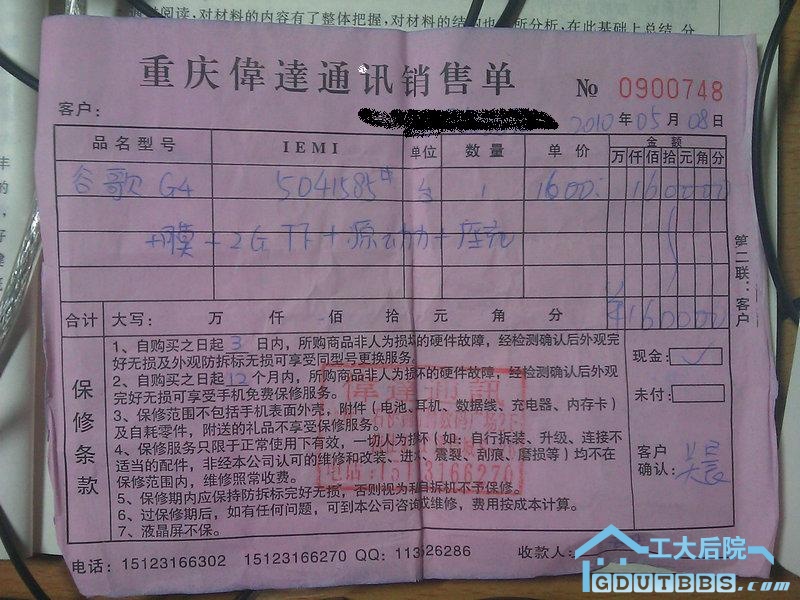 阅读，对材料的内容有了整体把握，对材料的结构也 所分析，在此基础上总结 分
重庆偉達通讯销售单
№ 0900748
客户：
2010 年 05 月 08 日
品名型号 IEMI 单位 数量 单价 金额
万 仟 佰 拾 元 角 分
谷歌 G4 5041585 台 1 1600 160000
+膜+2G +源动力+座充
¥160000
合计 大写： 万 仟 佰 拾 元 角 分
第二联：客户
保修条款
1、自购买之日起 3 日内，所购商品非人为损坏的硬件故障，经检测确认后外观完
好无损及外观防拆标无损可享受同型号更换服务。
2、自购买之日起 12 个月内，所购商品非人为损坏的硬件故障，经检测确认后外观
完好无损可享受手机免费保修服务。
3、保修范围不包括手机表面外壳，附件（电池、耳机、数据线、充电器、内存卡）
及自耗零件，附送的礼品不享受保修服务。
4、保修服务只限于正常使用下有效，一切人为损坏（如：自行拆装、升级、连接不
适当的配件，非经本公司认可的维修和改装、进水、震裂、刮痕、磨损等）均不在
保修范围内，维修照常收费。
5、保修期内应保持防拆标完好无损，否则视为私自拆机不予保修。
6、过保修期后，如有任何问题，可到本公司咨询或维修，费用按成本计算。
7、液晶屏不保。
现金：
未付：
客户
确认：
偉達通訊
电话:15123166270
电话：15123166302 15123166270 QQ：11326286 收款人：
工大后院
GDUTBBS.com